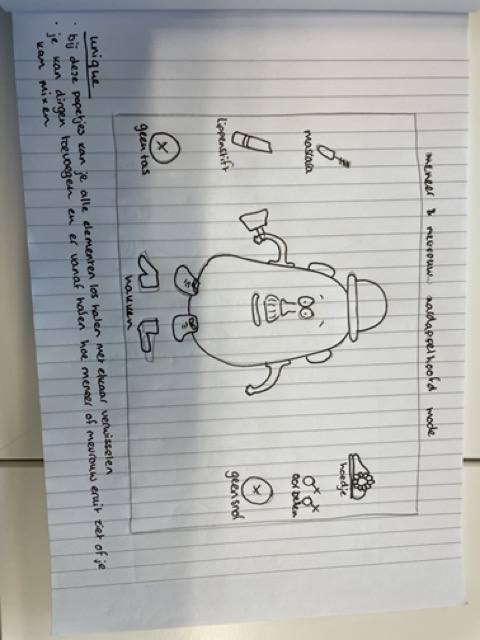 meneer & mevrouw aardappelhoofd mode
mascara
lippenstift
geen tas
hoedje
oorbellen
geen snor
hakken
unique
· bij deze popetjes kan je alle elementen los halen met elkaar verwisselen
· je kan dingen toevoegen en er vanaf halen hoe meneer of mevrouw eruit ziet of je
kan mixen